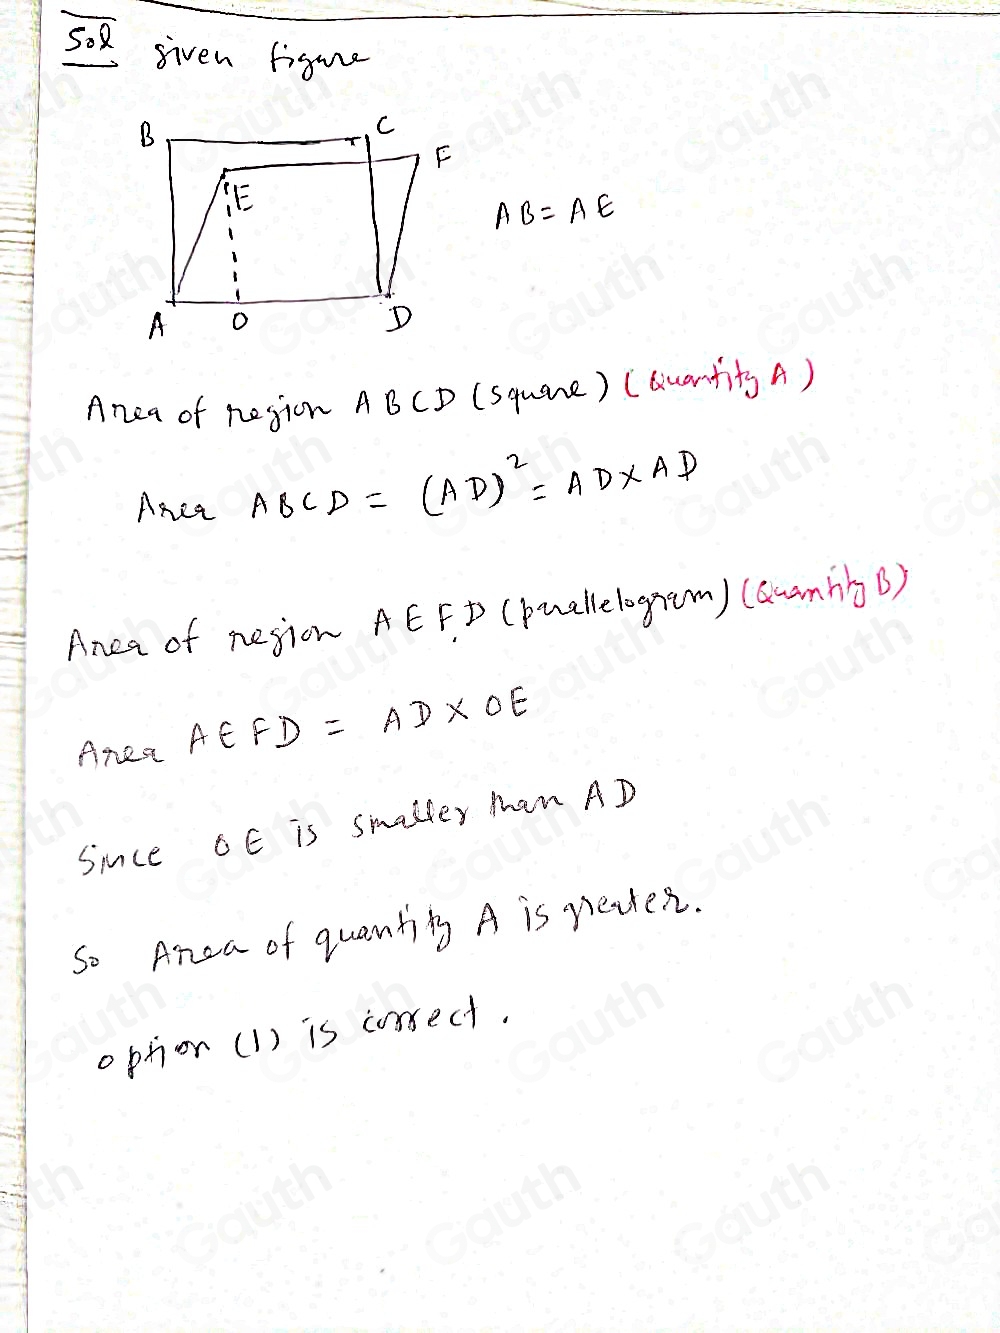 Sol given figure
B C
F
E
AB = AE
A O D
Area of region ABCD (square) (Quantity A)
Area ABCD = (AD)² = AD × AD
Area of region AEFD (parallelogram) (Quantity B)
Area AEFD = AD × OE
Since OE is smaller than AD
So Area of quantity A is greater.
option (1) is correct.
Gauth